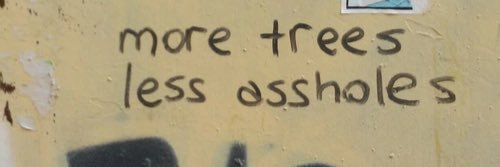 more trees
less assholes